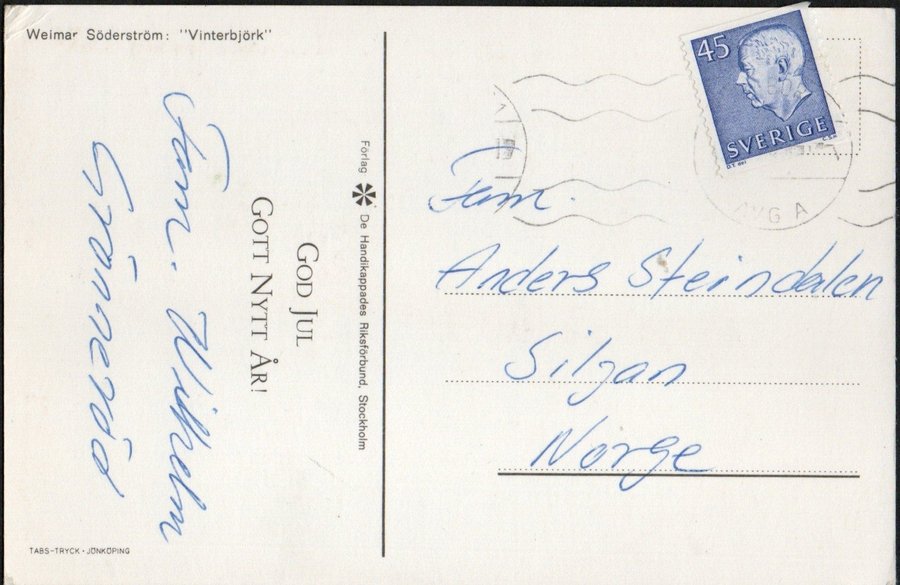 Weimar Söderström: "Vinterbjörk"
Fam. Wilhelm
GOD JUL
GOTT NYTT ÅR!
Förlag De Handikappades Riksförbund, Stockholm
TABS-TRYCK · JÖNKÖPING
45
SVERIGE
AVG A
Fam.
Anders Steindalen
Siljan
Norge